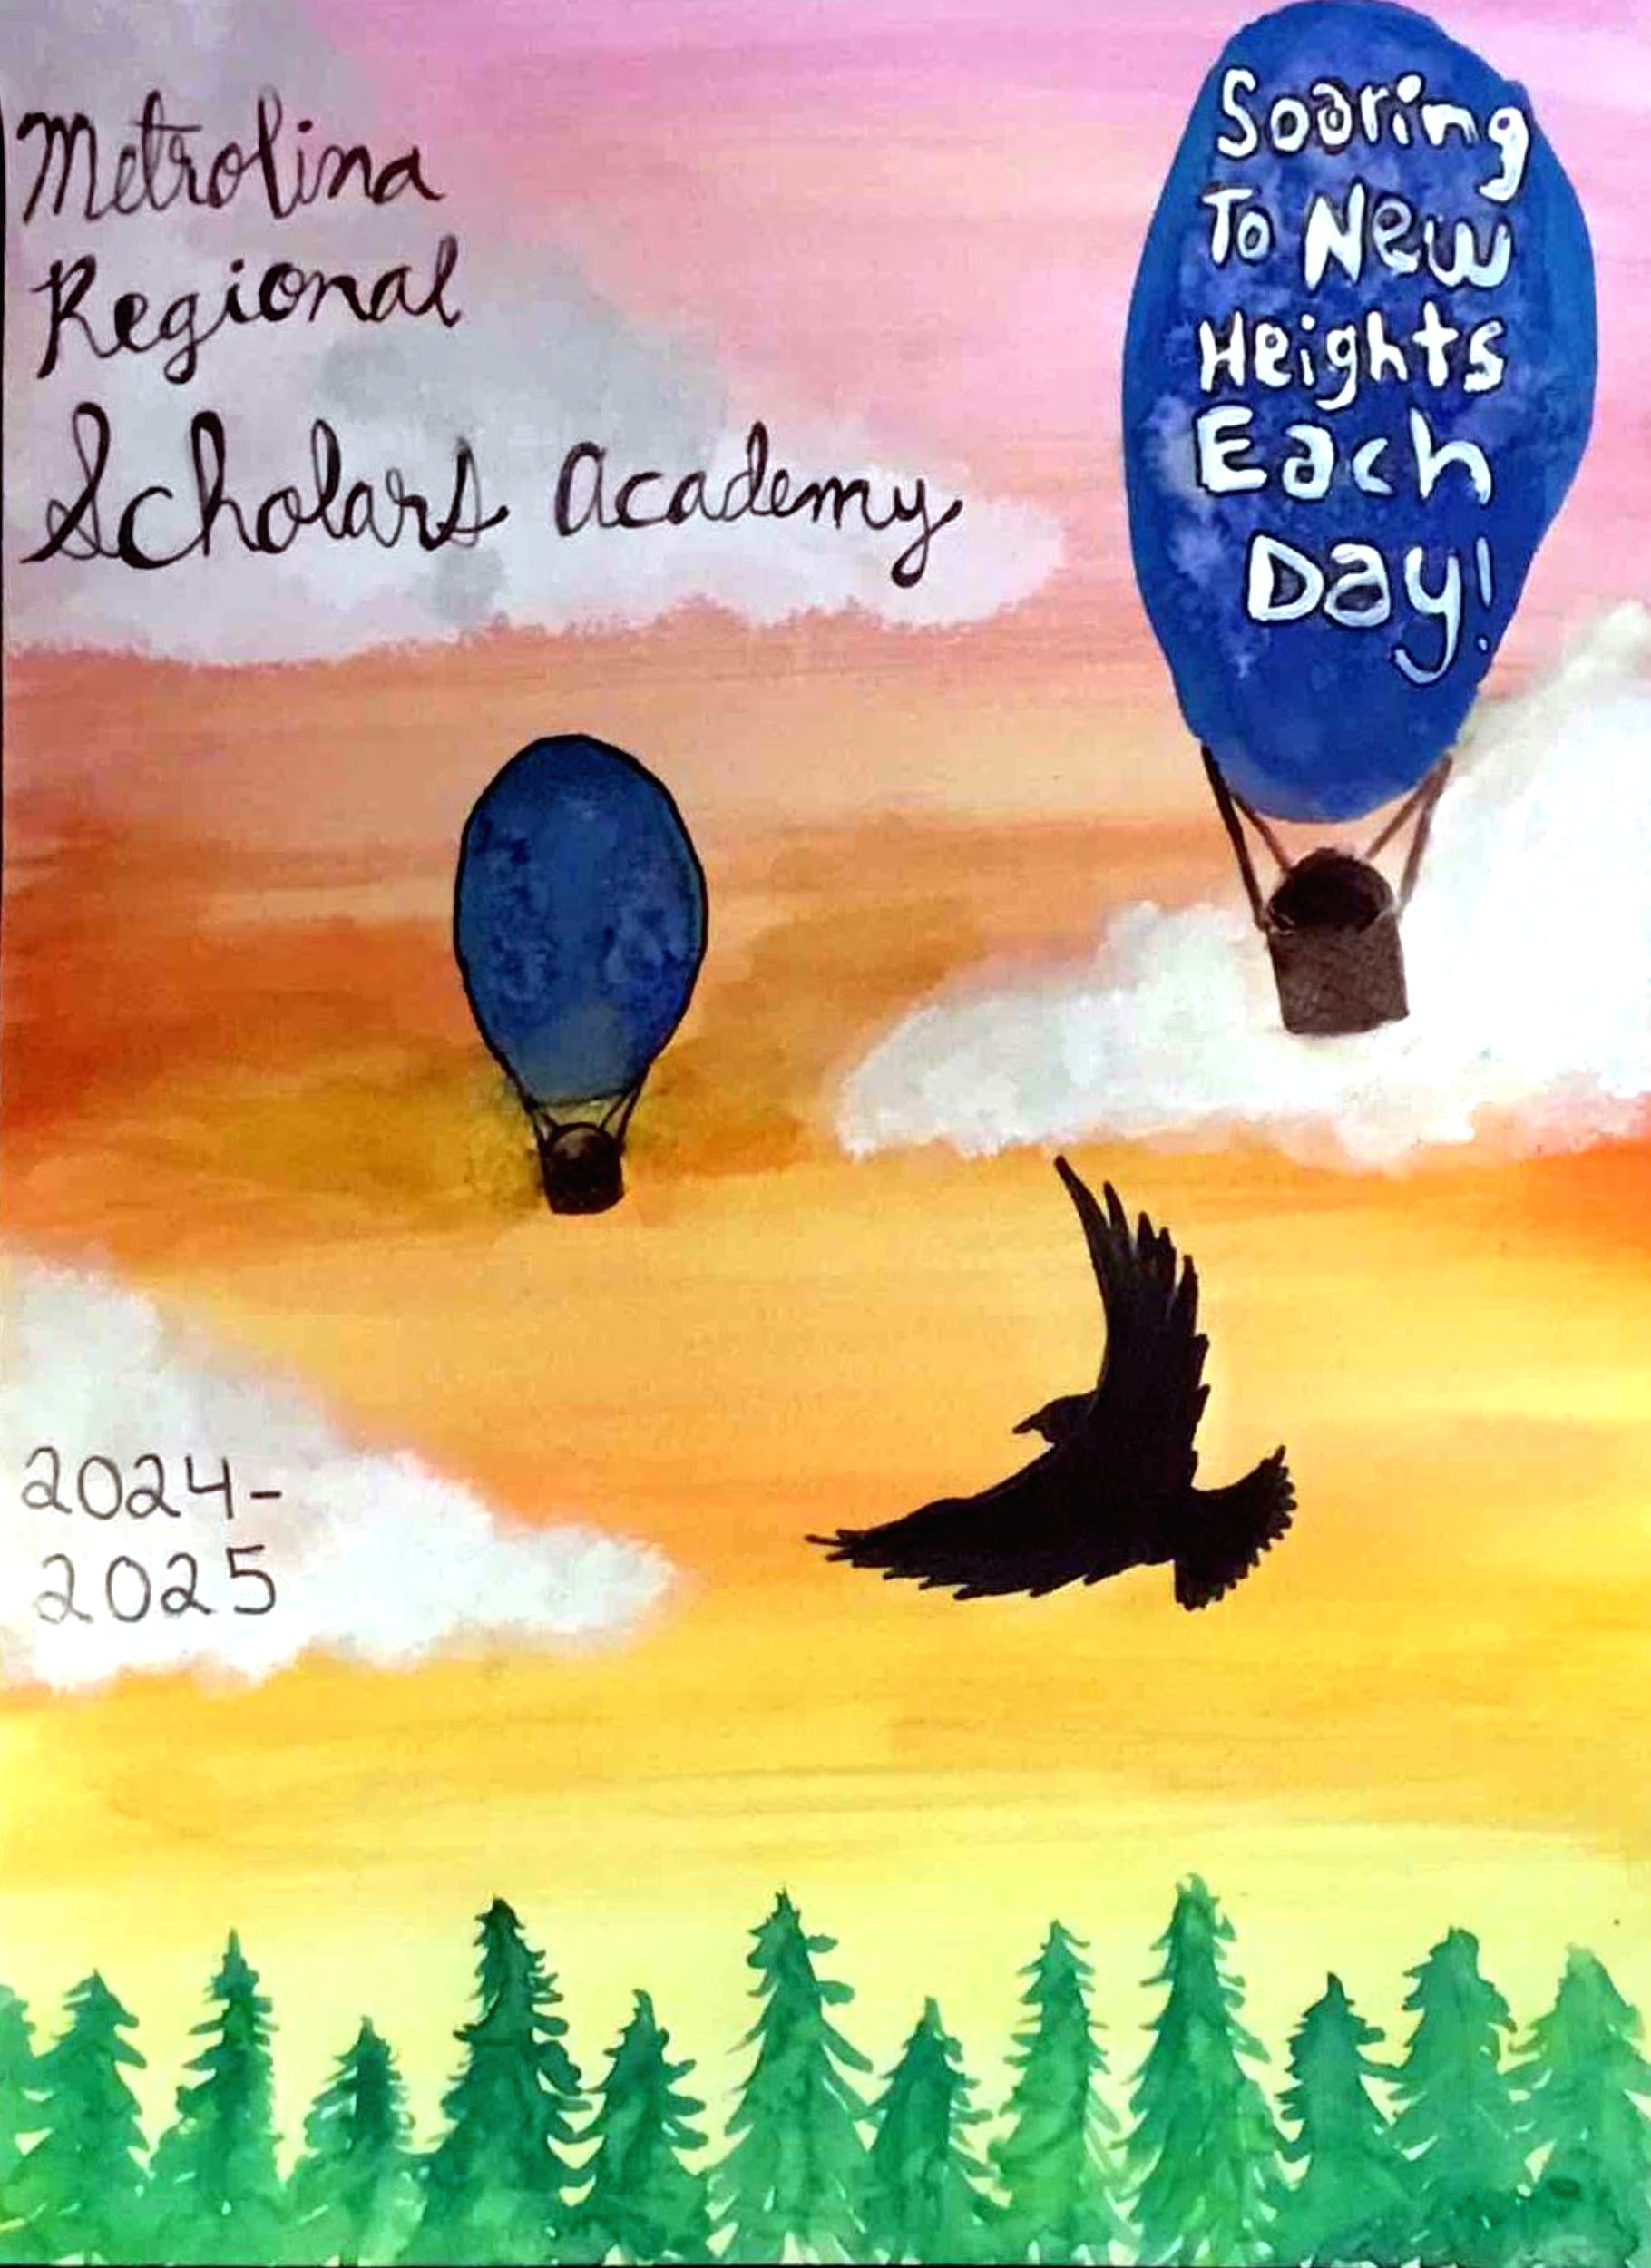 Metrolina
Regional
Scholars Academy
Soaring
To New
Heights
Each
Day!
2024-
2025